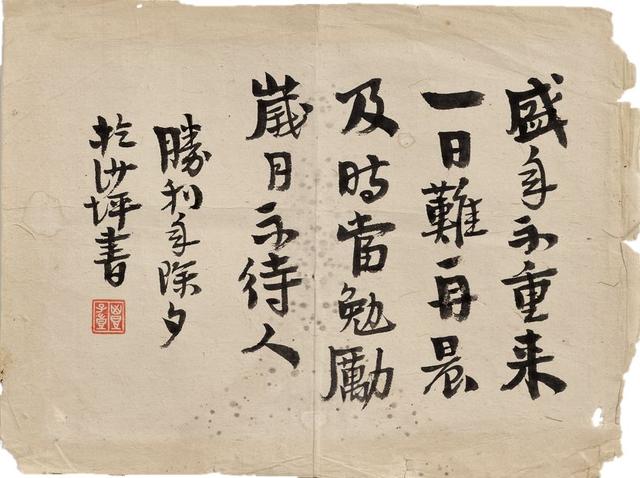 盛年不重来
一日難再晨
及時當勉勵
歲月不待人
勝利年除夕
於沙坪書